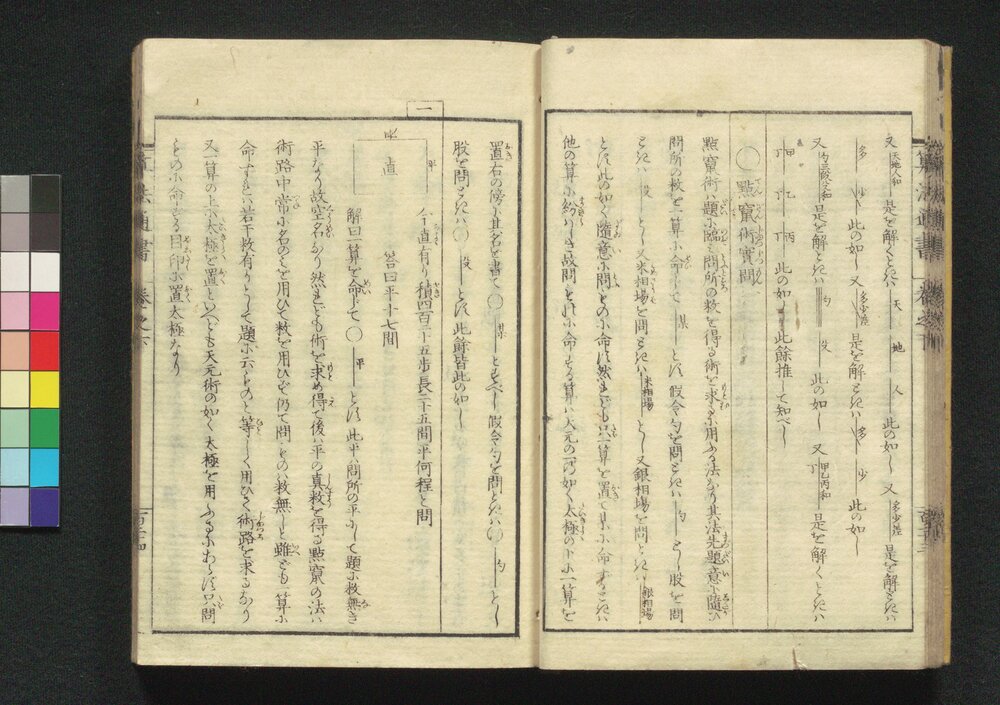 又 天地人和 是を解くときハ 天 地 人 此の如し 又 多少差 是を解ときハ
多 少 此の如し 又 多少差 是を解ときハ 多 少 此の如し
又 勾三段欠和 是を解ときハ 勾 殳 此の如し 又 甲乙丙和 是を解くときハ
甲 乙 丙 此の如し 此餘推して知べし
〇點竄術實問
點竄術ハ題ホ臨ミ問所の数を得る術を求るホ用ふる法なり其法先題意ホ隨ひ
問所の数を一算ホ命して 某 とし 假令勾を問ときハ 勾 とし股を問
ときハ 殳 とし又米相場を問ときハ 米相場 とし又銀相場を問ときハ 銀相場
とす此の如く隨意ホ問ものホ命ず然れども只一算を置て某ホ命するときハ
他の算ホ紛ハしき故問ものホ命ずる算ハ天元の一の如く太極の下ホ一算を
置右の傍ホ其名を書て〇 某 ともすべし假令勾を問ときハ〇 勾 とし
股を問ときハ〇 殳 とす此餘皆此の如し
一
長
平
直
今直有り積四百二十五歩長二十五間平何程と問
答曰平十七間
解曰一算を命して〇 平 とす此平ハ問所の平ホして題ホ数無き
平なり故空名なり然れども術を求め得て後ハ平の真数を得る點竄の法ハ
術路中常ホ名のミを用ひて数を用ひず仍て問ものハ数無しと雖ども一算ホ
命ずれハ若干数有りとして題ホ云ものと等しく用ひて術路を求るなり
又一算の上ホ太極を置といへども天元術の如く太極を用ふるホあらず只問
ものホ命ずる目印ホ置太極なり